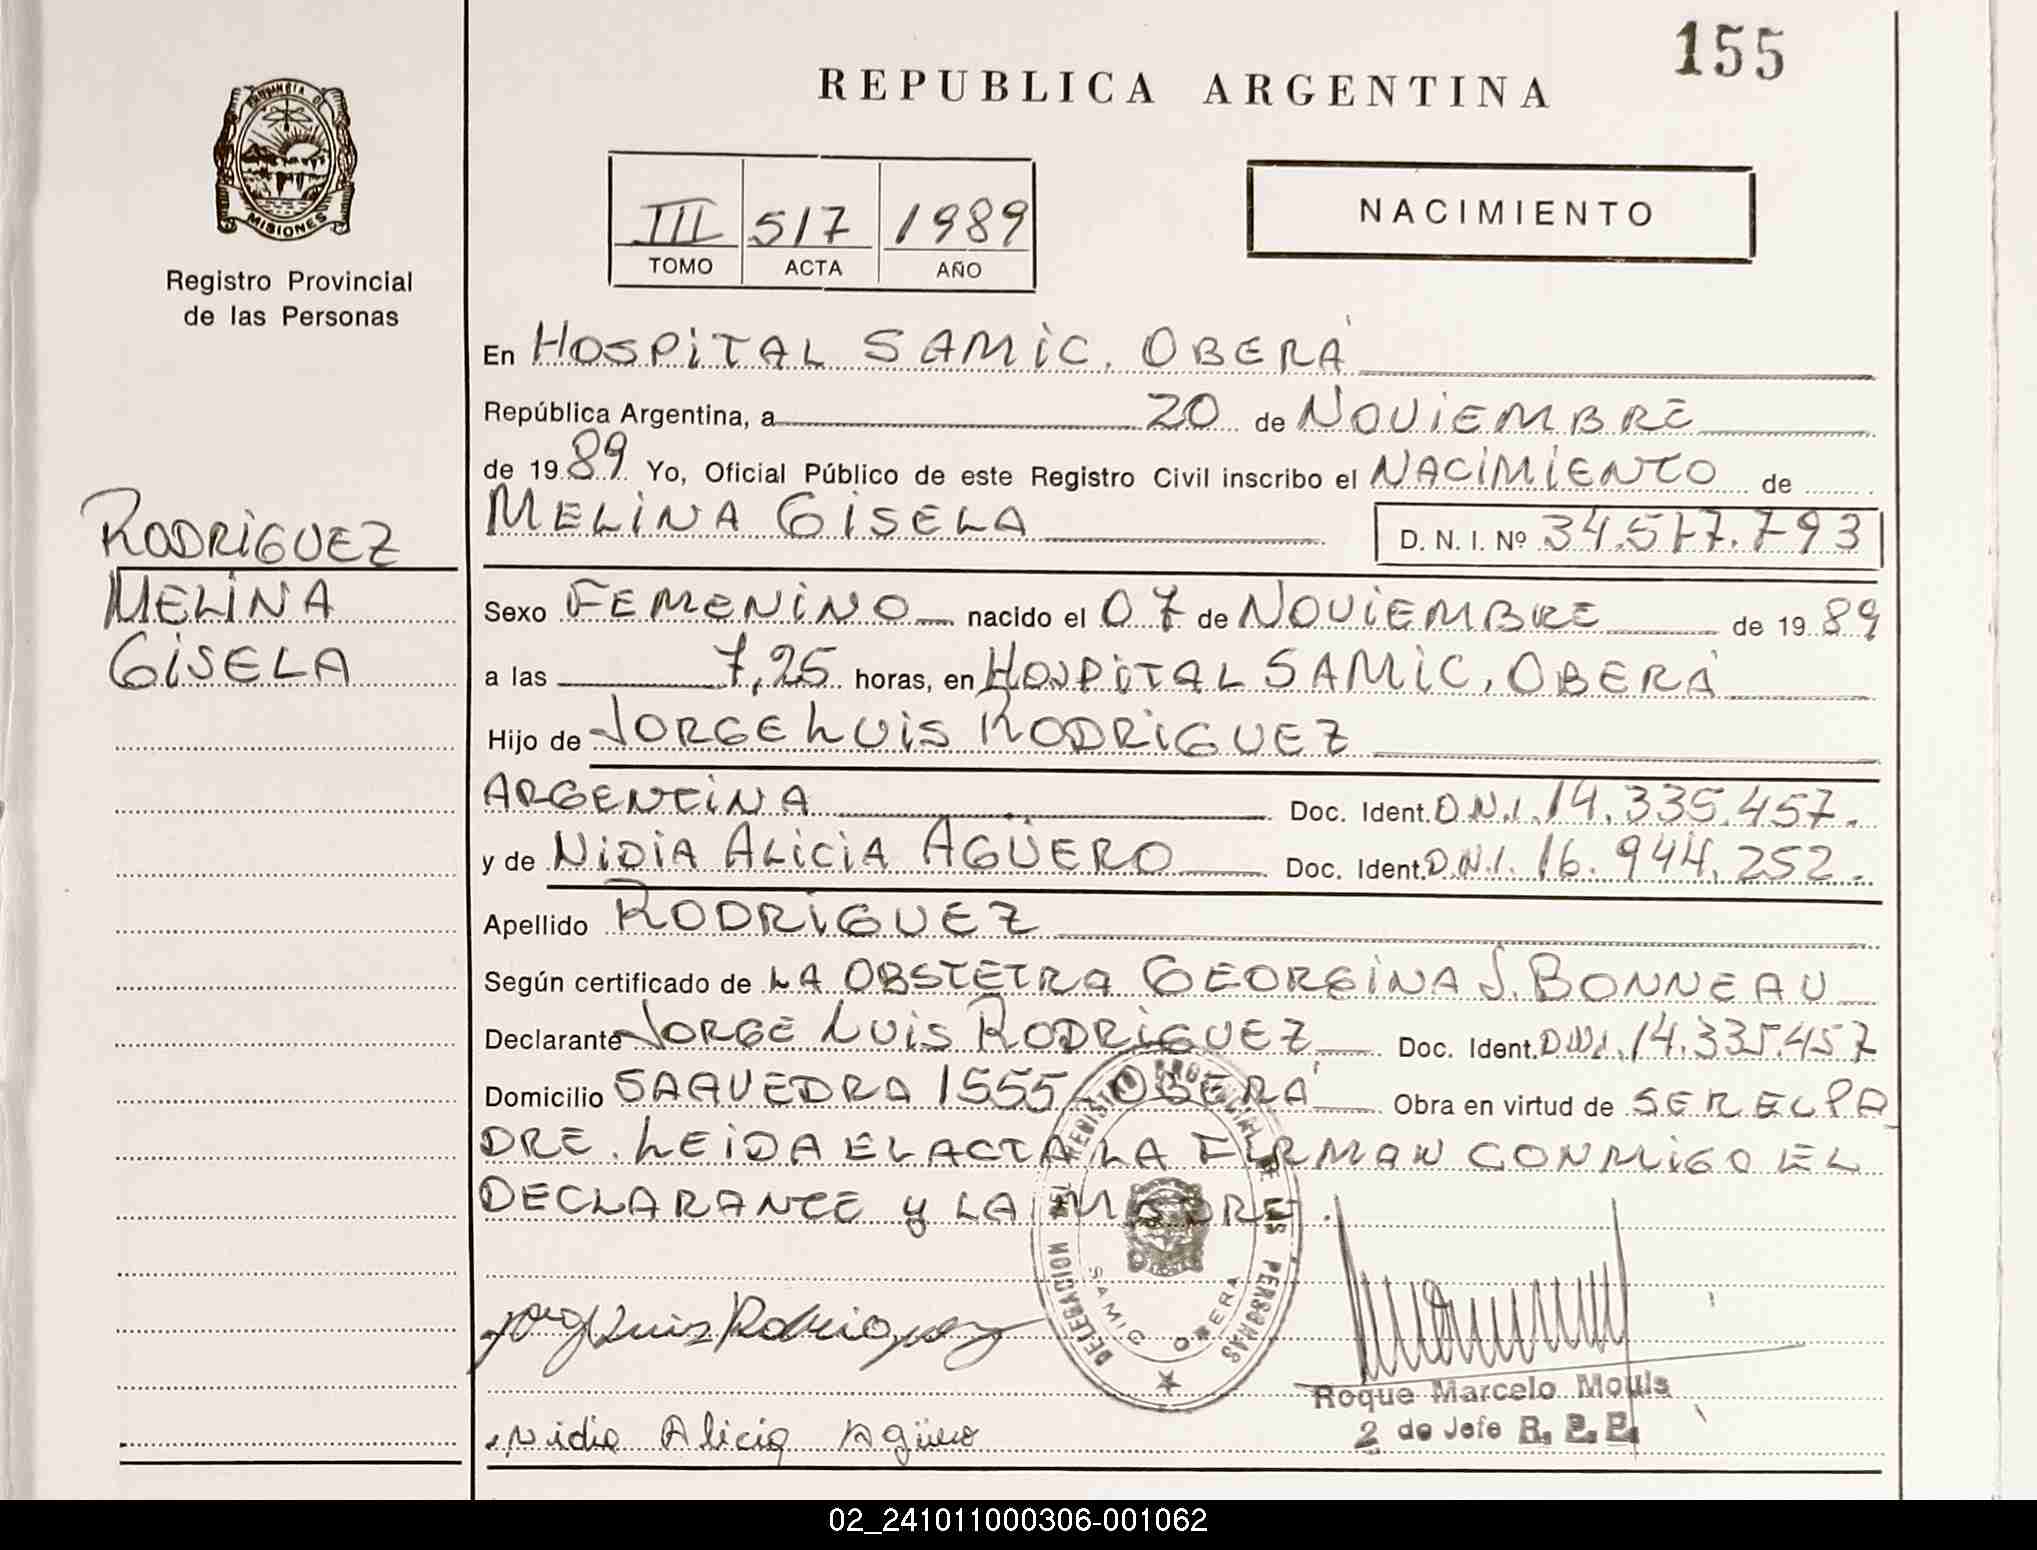 155
REPUBLICA ARGENTINA
PROVINCIA DE
MISIONES
Registro Provincial
de las Personas
III 517 1989
TOMO ACTA AÑO
NACIMIENTO
En HOSPITAL SAMIC, OBERÁ
República Argentina, a 20 de NOVIEMBRE
de 1989 Yo, Oficial Público de este Registro Civil inscribo el NACIMIENTO de
MELINA GISELA D. N. I. Nº 34.517.793
RODRIGUEZ
MELINA
GISELA
Sexo FEMENINO nacido el 07 de NOVIEMBRE de 1989
a las 7,25 horas, en HOSPITAL SAMIC, OBERÁ
Hijo de JORGE LUIS RODRIGUEZ
ARGENTINA Doc. Ident. D.N.I. 14.335.457.
y de NIDIA ALICIA AGÜERO Doc. Ident. D.N.I. 16.944.252.
Apellido RODRIGUEZ
Según certificado de LA OBSTETRA GEORGINA J. BONNEAU
Declarante JORGE LUIS RODRIGUEZ Doc. Ident. D.N.I. 14.335.457
Domicilio SAAVEDRA 1555, OBERÁ Obra en virtud de SER EL PA
DRE. LEIDA EL ACTA LA FIRMAN CONMIGO EL
DECLARANTE y LA MADRE.
DELEGACION REGISTRO PROVINCIAL DE LAS PERSONAS
SAMIC OBERA
Jorge Luis Rodriguez
Nidia Alicia Agüero
Roque Marcelo Mouls
2 do Jefe R. P. P.
02_241011000306-001062